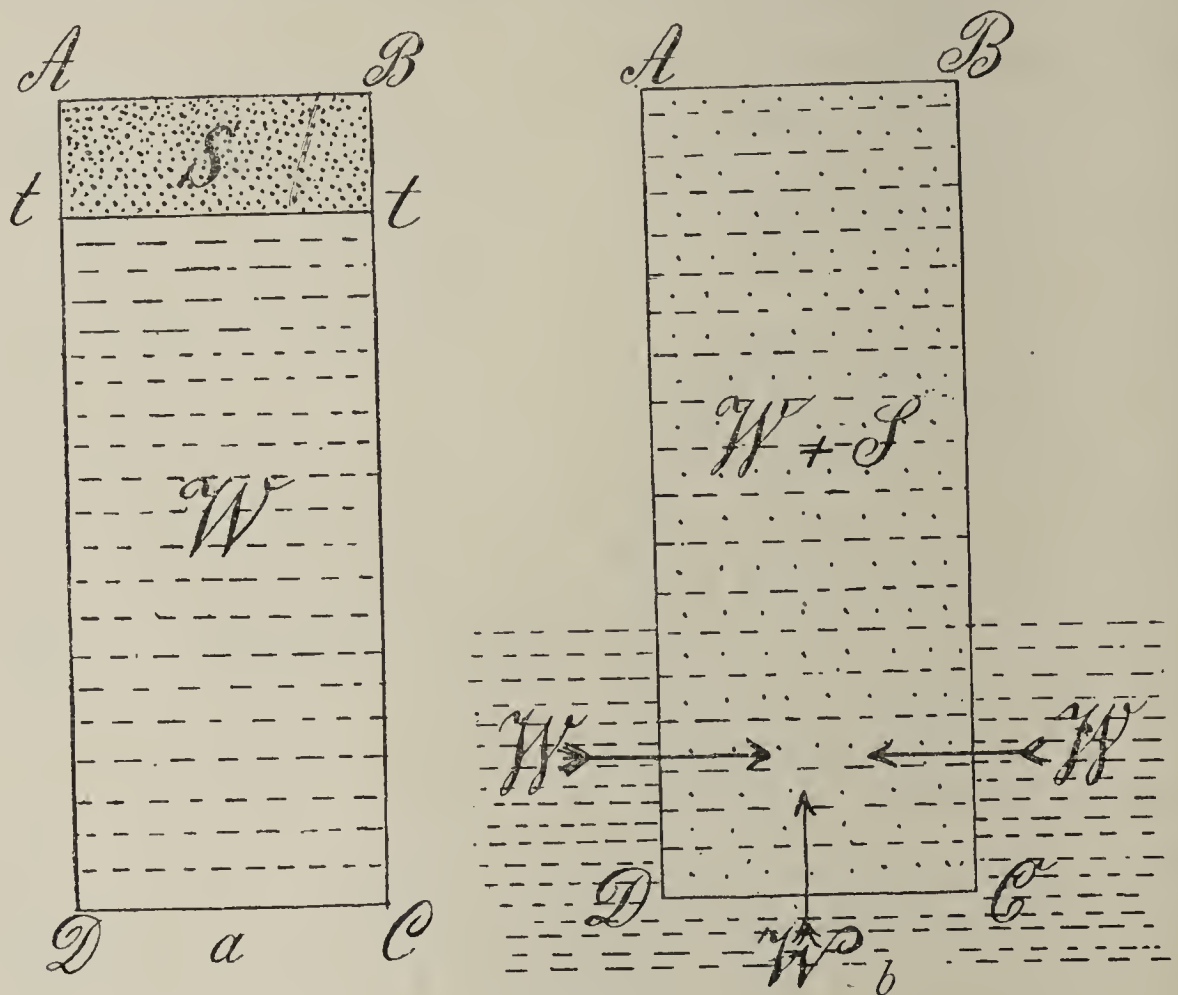 A B
S
t t
W
D a C
A B
W + S
W W
D C
W b